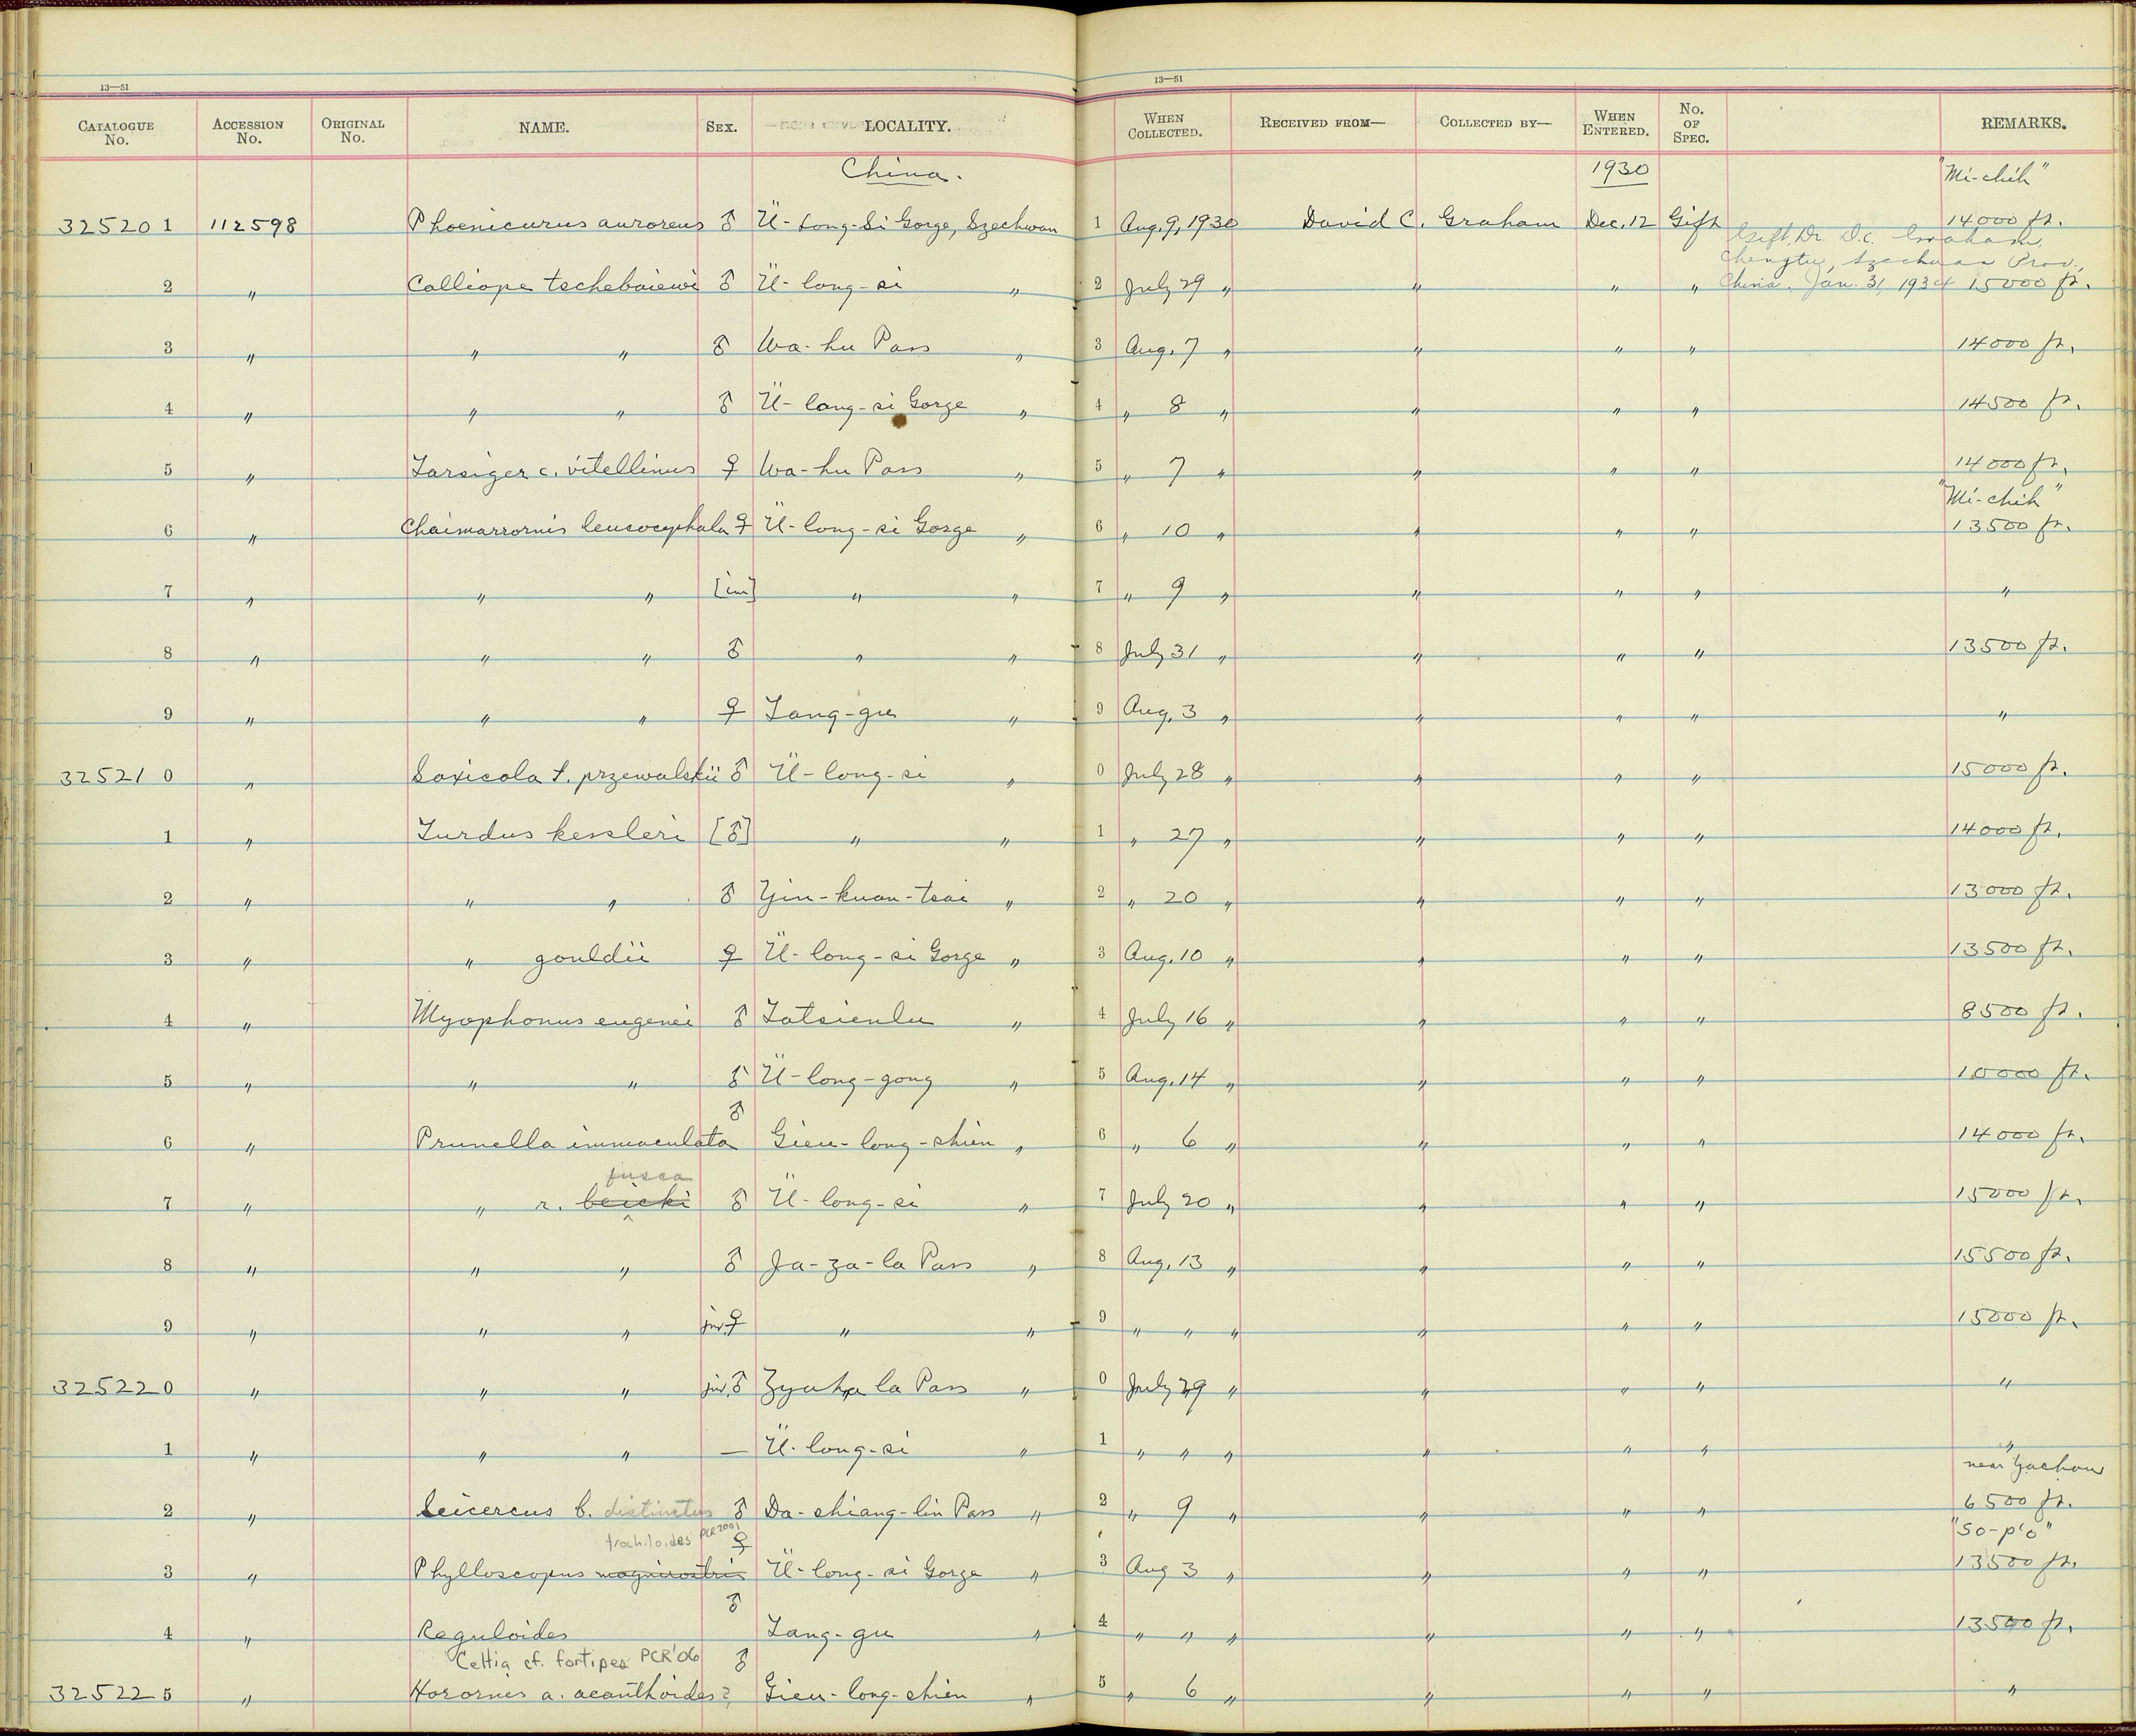 13—51 13—51
CATALOGUE No. ACCESSION No. ORIGINAL No. NAME. SEX. LOCALITY. WHEN COLLECTED. RECEIVED FROM— COLLECTED BY— WHEN ENTERED. No. OF SPEC. REMARKS.
China. 1930 "Mi-chih"
325201 112598 Phoenicurus auroreus ♂ Ü-long-Si Gorge, Szechwan 1 Aug. 9, 1930 David C. Graham Dec. 12 Gift 14000 ft.
Gift, Dr. D.C. Graham,
Chengtu, Szechuan Prov.,
China. Jan. 31, 1934
2 " Calliope tschebaiewi ♂ Ü-long-si " 2 July 29 " " " " 15000 ft.
3 " " " ♂ Wa-hu Pass " 3 Aug. 7 " " " " 14000 ft.
4 " " " ♂ Ü-long-si Gorge " 4 " 8 " " " " 14500 ft.
5 " Tarsiger c. vitellinus ♀ Wa-hu Pass " 5 " 7 " " " " 14000 ft.
"Mi-chih"
6 " Chaimarrornis leucocephala ♀ Ü-long-si Gorge " 6 " 10 " " " " 13500 ft.
7 " " " [im] " " 7 " 9 " " " " "
8 " " " ♂ " " 8 July 31 " " " " 13500 ft.
9 " " " ♀ Tang-gu " 9 Aug. 3 " " " " "
325210 " Saxicola t. przewalskii ♂ Ü-long-si " 0 July 28 " " " " 15000 ft.
1 " Turdus kessleri [♂] " " 1 " 27 " " " " 14000 ft.
2 " " " ♂ Yin-kuan-tsai " 2 " 20 " " " " 13000 ft.
3 " " gouldii ♀ Ü-long-si Gorge " 3 Aug. 10 " " " " 13500 ft.
4 " Myophonus eugenei ♂ Tatsienlu " 4 July 16 " " " " 8500 ft.
5 " " " ♂ Ü-long-gong " 5 Aug. 14 " " " " 10000 ft.
6 " Prunella immaculata ♂ Gieu-long-shien " 6 " 6 " " " " 14000 ft.
fusca
7 " " r. beicki ♂ Ü-long-si " 7 July 20 " " " " 15000 ft.
8 " " " ♂ Ja-za-la Pass " 8 Aug. 13 " " " " 15500 ft.
9 " " " juv. ♀ " " 9 " " " " " " 15000 ft.
325220 " " " juv. ♂ la Pass " 0 July 29 " " " " "
1 " " " — Ü-long-si " 1 " " " " " " "
near Yachow
2 " Seicercus b. distinctus ♂ Da-shiang-lin Pass " 2 " 9 " " " " 6500 ft.
trochiloides PCR 2001 "So-p'o"
3 " Phylloscopus magnirostris ♀ Ü-long-si Gorge " 3 Aug 3 " " " " 13500 ft.
4 " Reguloides ♂ Tang-gu " 4 " " " " " " 13500 ft.
Cettia cf. fortipes PCR'06
325225 " Horornis a. acanthoides? ♂ Gieu-long-shien " 5 " 6 " " " " "